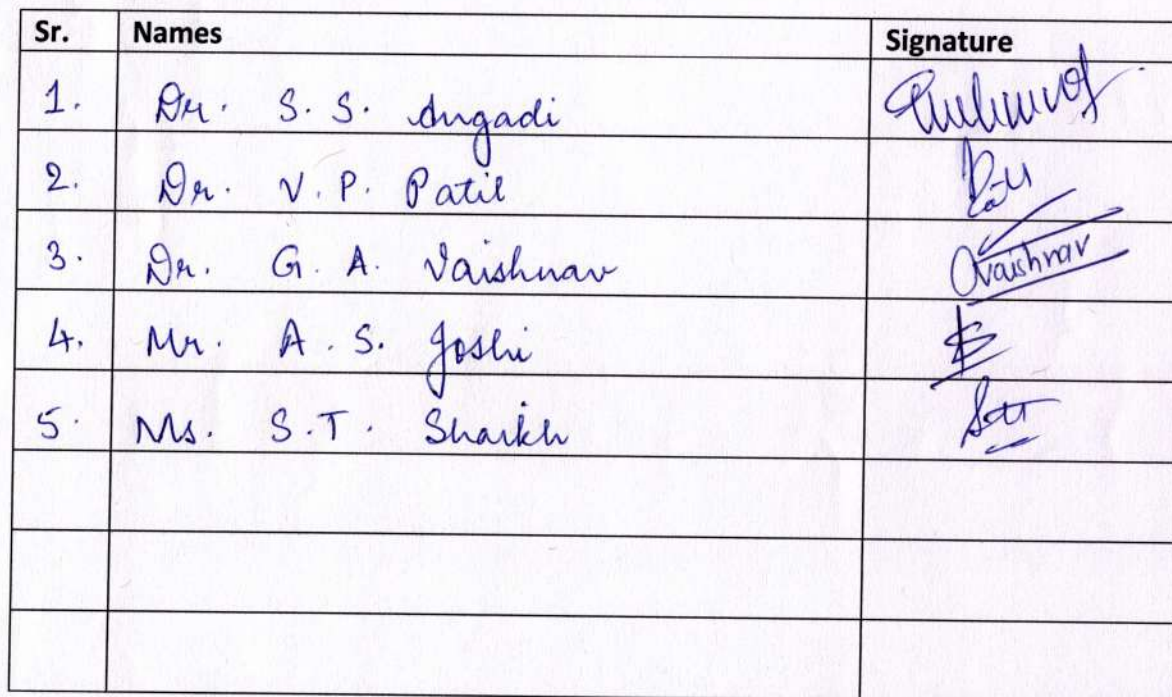 Sr. Names Signature
1. Dr. S. S. Angadi
2. Dr. V. P. Patil
3. Dr. G. A. Vaishnav Vaishnav
4. Mr. A. S. Joshi
5. Ms. S.T. Shaikh